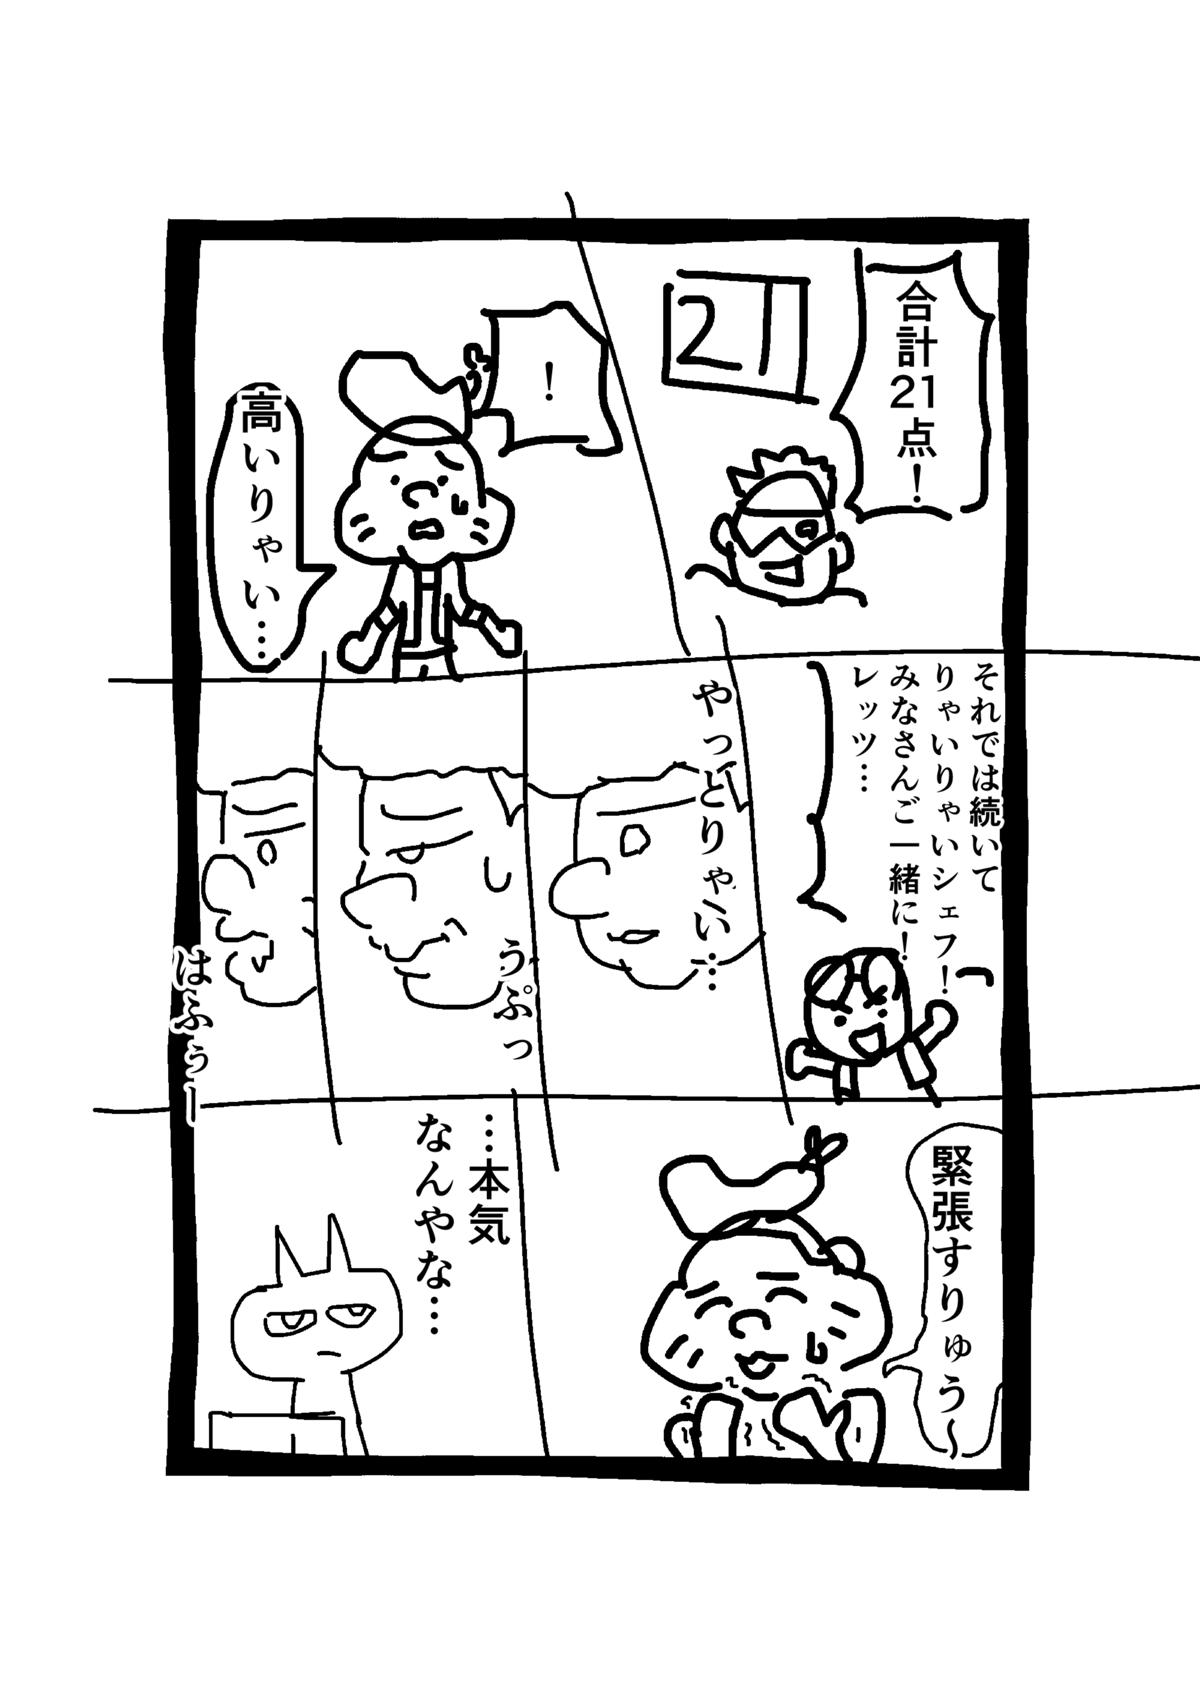 合計21点！
21
！
高いりゃい…
それでは続いて
りゃいりゃいシェフ！
みなさんご一緒に！
レッツ…
やっとりゃい…
うぷっ
はふぅー
緊張すりゅう〜
…本気
なんやな…